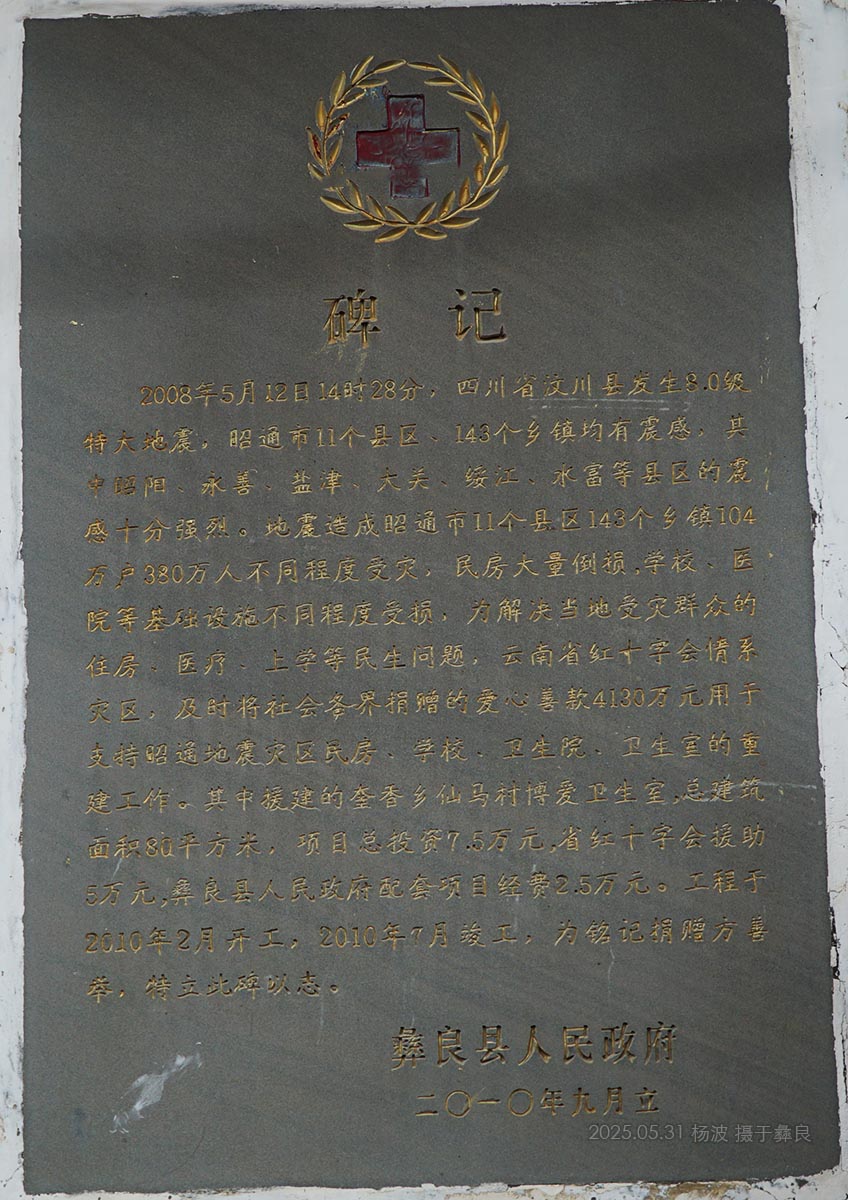 碑 记
2008年5月12日14时28分，四川省汶川县发生8.0级
特大地震，昭通市11个县区、143个乡镇均有震感，其
中昭阳、永善、盐津、大关、绥江、水富等县区的震
感十分强烈。地震造成昭通市11个县区143个乡镇104
万户380万人不同程度受灾，民房大量倒损,学校、医
院等基础设施不同程度受损，为解决当地受灾群众的
住房、医疗、上学等民生问题，云南省红十字会情系
灾区，及时将社会各界捐赠的爱心善款4130万元用于
支持昭通地震灾区民房、学校、卫生院、卫生室的重
建工作。其中援建的奎香乡仙马村博爱卫生室,总建筑
面积80平方米，项目总投资7.5万元,省红十字会援助
5万元,彝良县人民政府配套项目经费2.5万元。工程于
2010年2月开工，2010年7月竣工，为铭记捐赠方善
举，特立此碑以志。
彝良县人民政府
二〇一〇年九月立
2025.05.31 杨波 摄于彝良